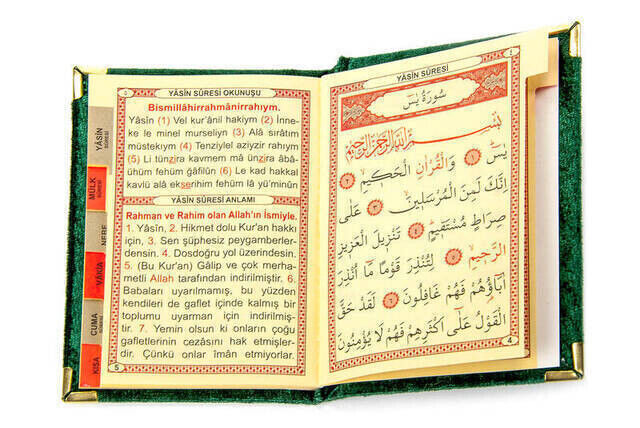 YÂSİN SÛRESİ OKUNUŞU
Bismillâhirrahmânirrahıym.
Yâsîn (1) Vel kur'ânil hakiym (2) İnne-
ke le minel murseliyn (3) Alâ sırâtım
müstekıym (4) Tenziylel aziyzir rahıym
(5) Li tünzira kavmem mâ ünzira âbâ-
ühüm fehüm gâfilûn (6) Le kad hakkal
kavlü alâ ekserihim fehüm lâ yü'minûn
YÂSİN SÛRESİ ANLAMI
Rahman ve Rahim olan Allah'ın İsmiyle.
1. Yâsîn, 2. Hikmet dolu Kur'an hakkı
için, 3. Sen şüphesiz peygamberler-
densin. 4. Dosdoğru yol üzerindesin.
5. (Bu Kur'an) Gâlip ve çok merha-
metli Allah tarafından indirilmiştir. 6.
Babaları uyarılmamış, bu yüzden
kendileri de gaflet içinde kalmış bir
toplumu uyarman için indirilmiş-
tir. 7. Yemin olsun ki onların çoğu
gafletlerinin cezasını hak etmişler-
dir. Çünkü onlar îmân etmiyorlar.
5
YÂSİN
SÛRESİ
MÜLK
SÛRESİ
NEBE
VÂKIA
CUMA
KISA
YÂSİN SÛRESİ
سُورَةُ يٰسٓ
بِسْمِ اللّٰهِ الرَّحْمٰنِ الرَّحِيمِ
يٰسٓ ﴿١﴾ وَالْقُرْاٰنِ الْحَكِيمِ ﴿٢﴾
اِنَّكَ لَمِنَ الْمُرْسَلِينَ ﴿٣﴾ عَلٰى
صِرَاطٍ مُسْتَقِيمٍ ﴿٤﴾ تَنْزِيلَ الْعَزِيزِ
الرَّحِيمِ ﴿٥﴾ لِتُنْذِرَ قَوْمًا مَا اُنْذِرَ
اٰبَاؤُهُمْ فَهُمْ غَافِلُونَ ﴿٦﴾ لَقَدْ حَقَّ
الْقَوْلُ عَلٰى اَكْثَرِهِمْ فَهُمْ لَا يُؤْمِنُونَ
4